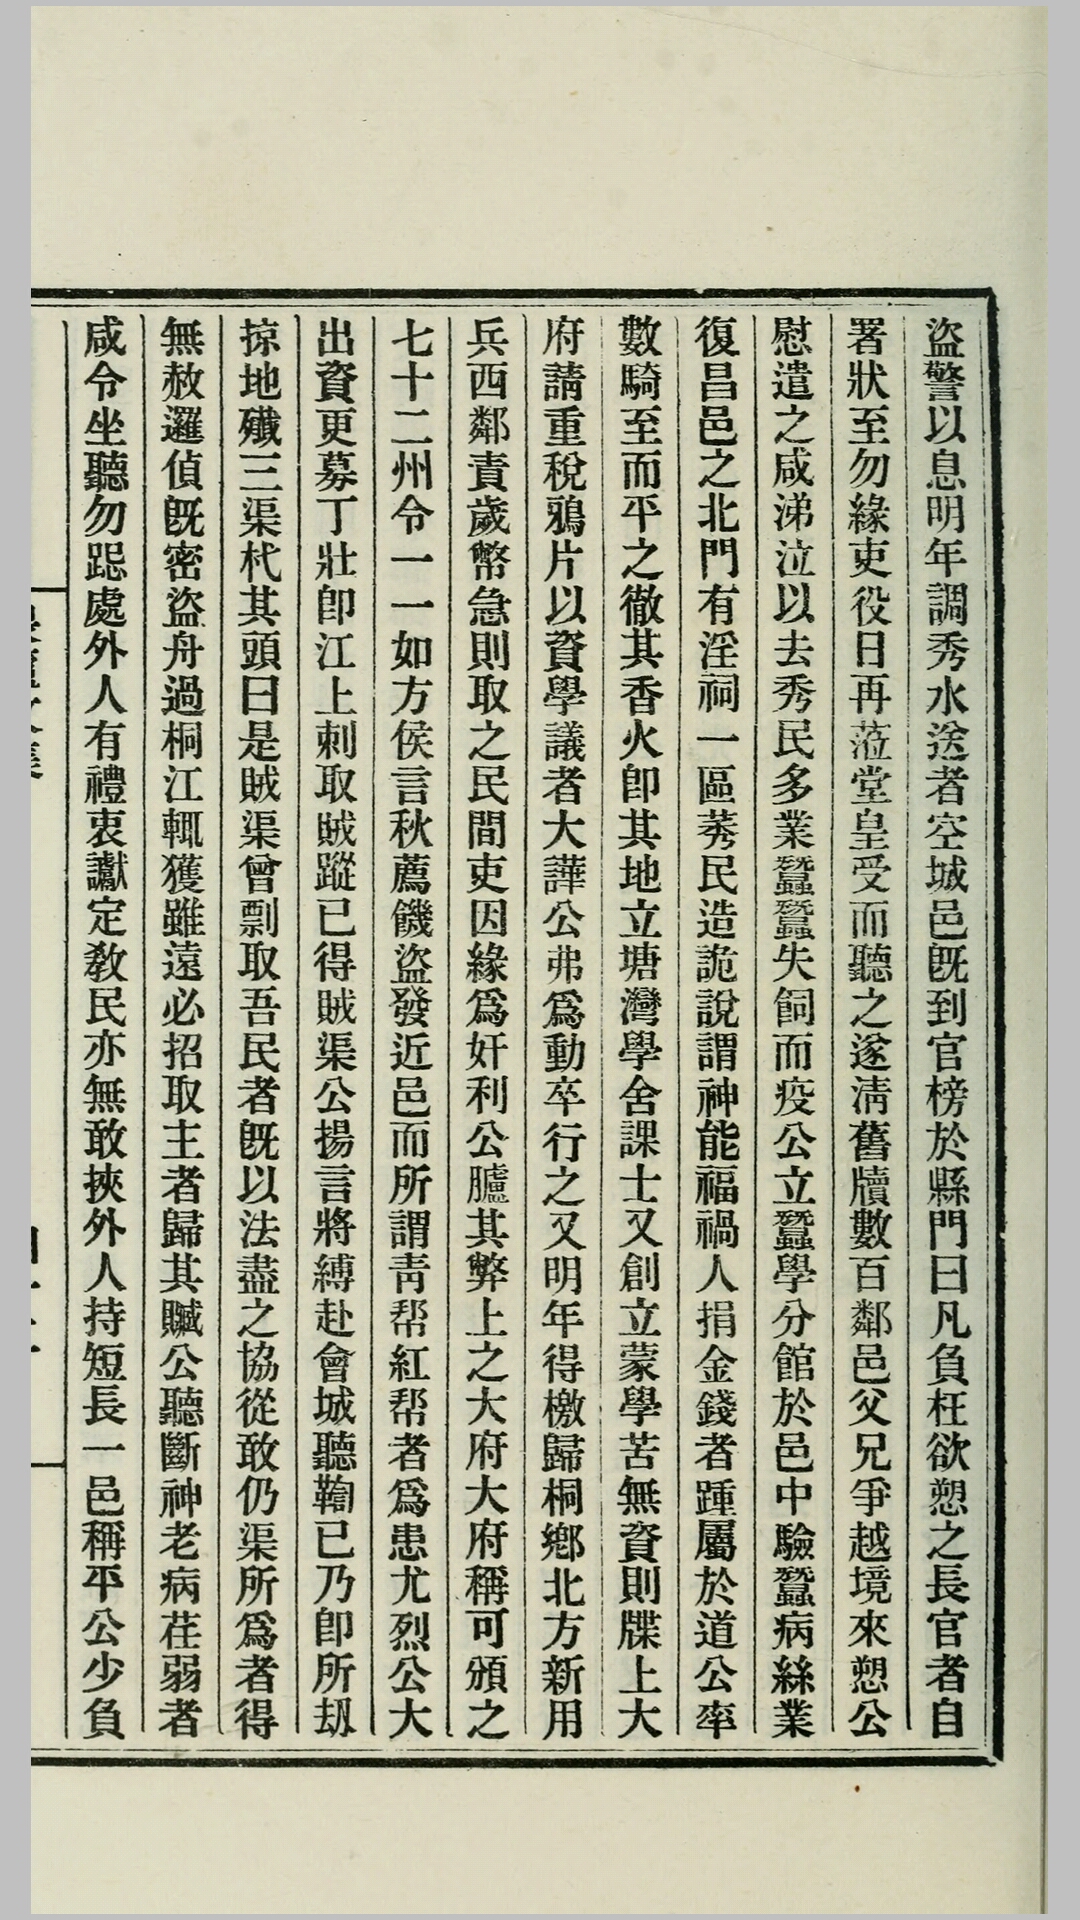 盜警以息明年調秀水送者空城邑旣到官榜於縣門曰凡負枉欲愬之長官者自
署狀至勿緣吏役日再蒞堂皇受而聽之遂淸舊牘數百鄰邑父兄爭越境來愬公
慰遣之咸涕泣以去秀民多業蠶蠶失飼而疫公立蠶學分館於邑中驗蠶病絲業
復昌邑之北門有淫祠一區莠民造詭說謂神能福禍人捐金錢者踵屬於道公率
數騎至而平之徹其香火卽其地立塘灣學舍課士又創立蒙學苦無資則牒上大
府請重稅鴉片以資學議者大譁公弗爲動卒行之又明年得檄歸桐鄕北方新用
兵西鄰責歲幣急則取之民間吏因緣爲奸利公臚其弊上之大府大府稱可頒之
七十二州令一一如方侯言秋薦饑盜發近邑而所謂靑帮紅帮者爲患尤烈公大
出資更募丁壯卽江上刺取賊蹤已得賊渠公揚言將縛赴會城聽鞫已乃卽所刼
掠地殲三渠杙其頭曰是賊渠曾剽取吾民者旣以法盡之協從敢仍渠所爲者得
無赦邏偵旣密盜舟過桐江輒獲雖遠必招取主者歸其贓公聽斷神老病荏弱者
咸令坐聽勿跽處外人有禮衷讞定敎民亦無敢挾外人持短長一邑稱平公少負